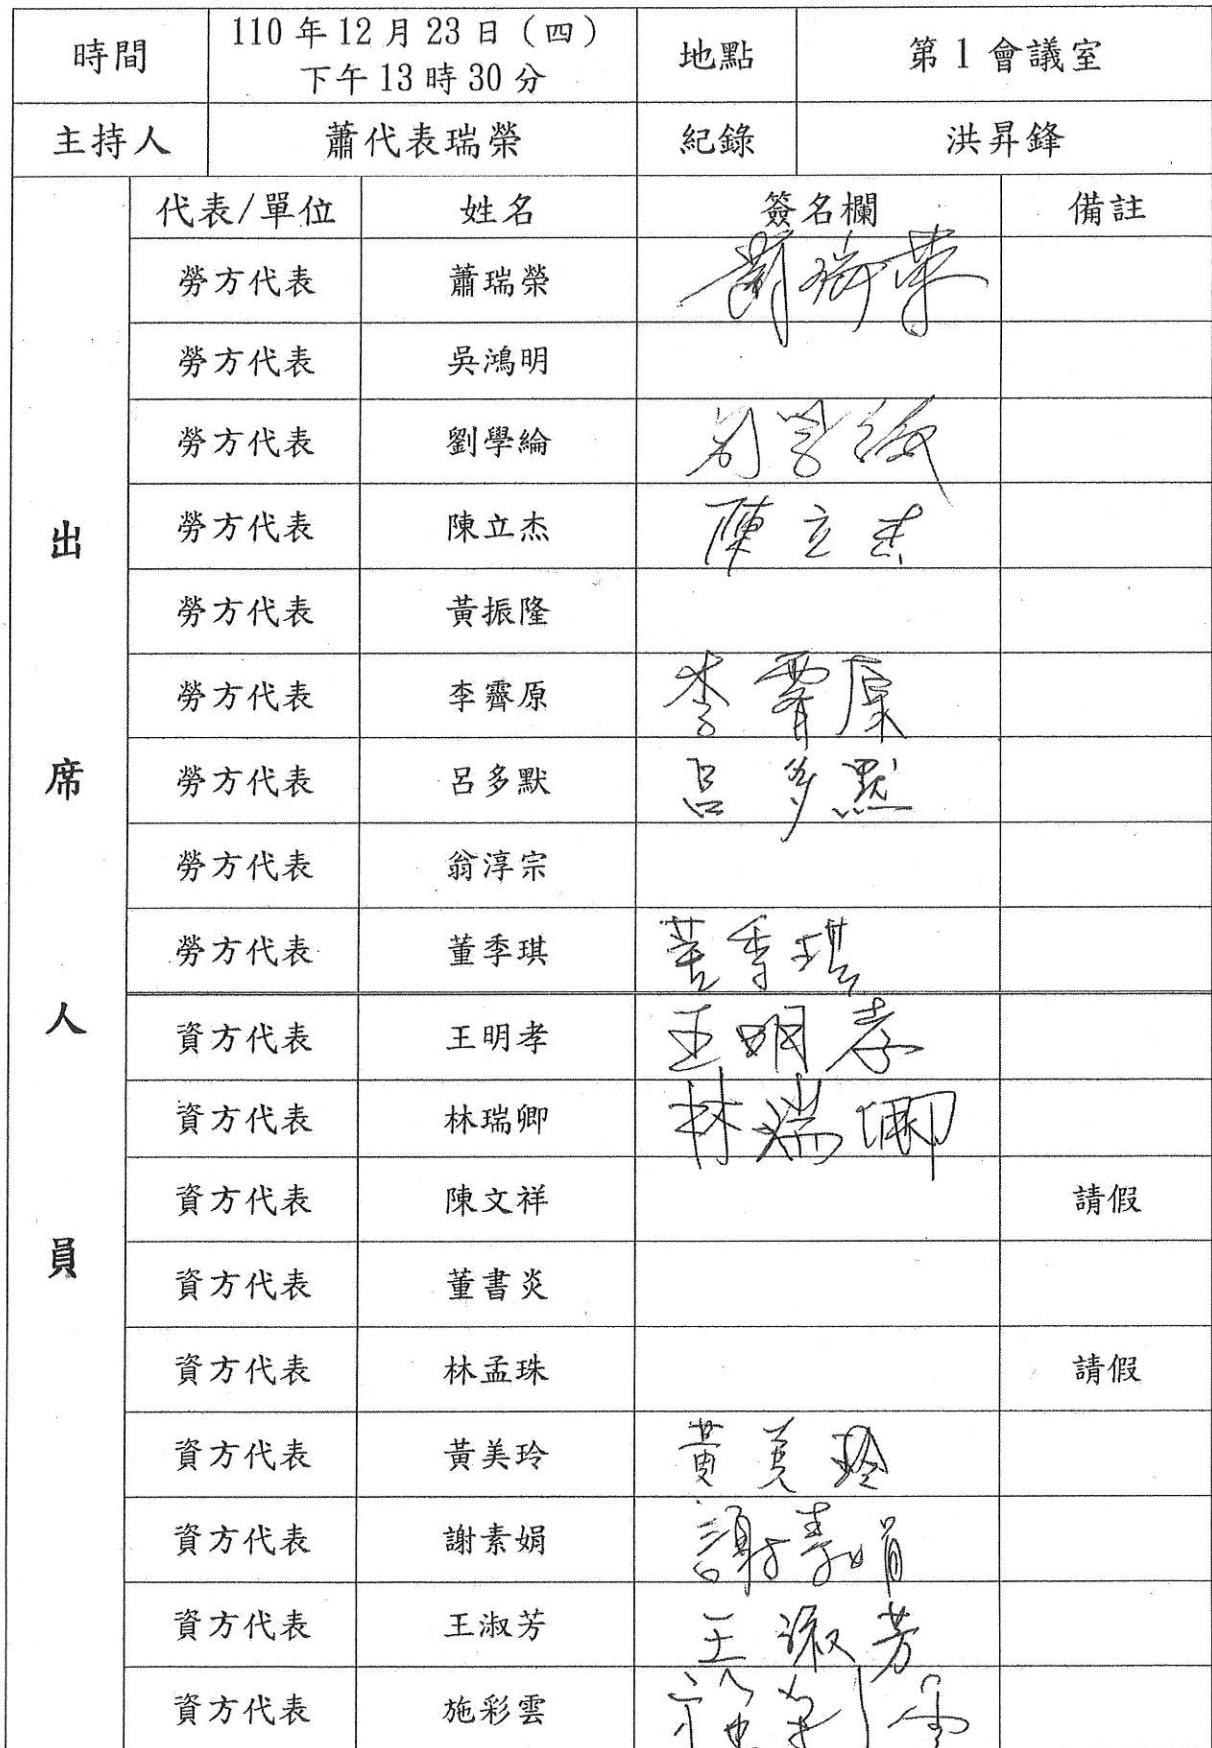 時間 110 年 12 月 23 日（四） 地點 第 1 會議室
下午 13 時 30 分
主持人 蕭代表瑞榮 紀錄 洪昇鋒
出席人員
代表/單位 姓名 簽名欄 備註
勞方代表 蕭瑞榮 蕭瑞榮
勞方代表 吳鴻明
勞方代表 劉學綸 劉学綸
勞方代表 陳立杰 陳立杰
勞方代表 黃振隆
勞方代表 李霽原 李霽原
勞方代表 呂多默 呂多默
勞方代表 翁淳宗
勞方代表 董季琪 董季琪
資方代表 王明孝 王明孝
資方代表 林瑞卿 林瑞卿
資方代表 陳文祥 請假
資方代表 董書炎
資方代表 林孟珠 請假
資方代表 黃美玲 黃美玲
資方代表 謝素娟 謝素娟
資方代表 王淑芳 王淑芳
資方代表 施彩雲 施彩雲